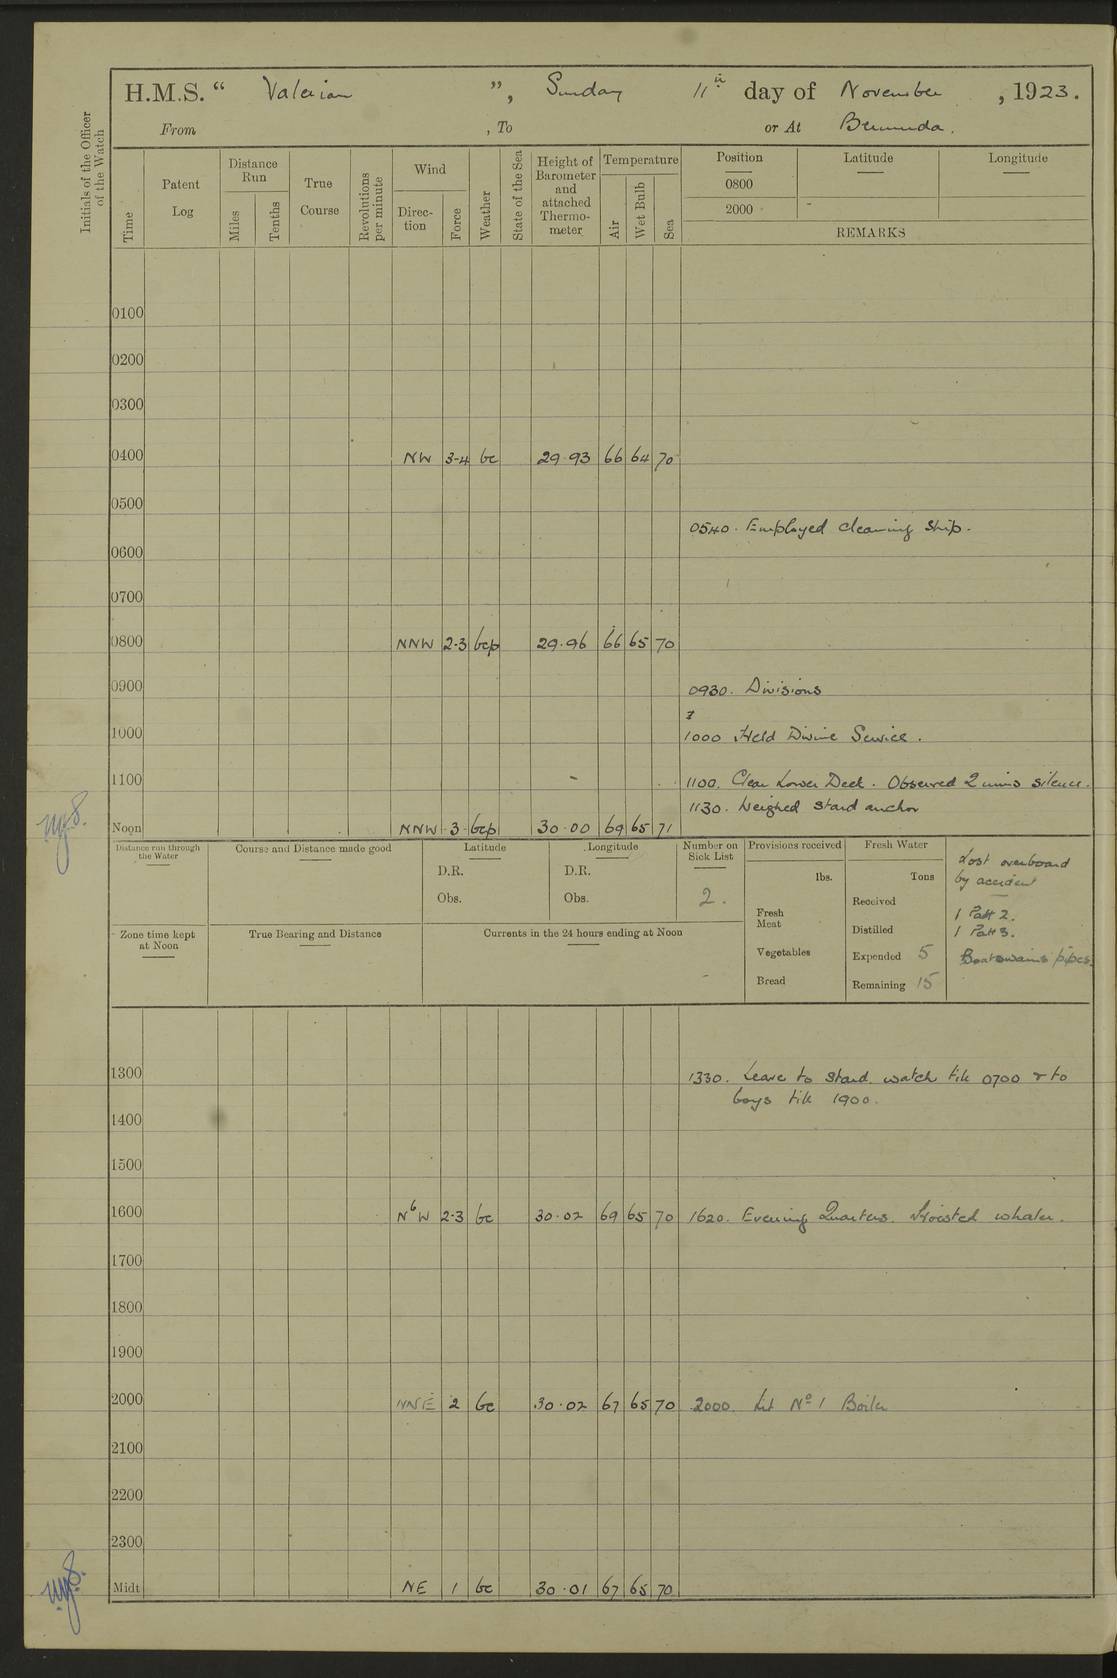 H.M.S. “ Valerian ”, Sunday 11th day of November, 1923.
From , To or At Bermuda.
Initials of the Officer of the Watch
Time
Patent Log
Distance Run
Miles
Tenths
True Course
Revolutions per minute
Wind
Direc-tion
Force
Weather
State of the Sea
Height of Barometer and attached Thermo-meter
Temperature
Air
Wet Bulb
Sea
Position Latitude Longitude
0800
2000
REMARKS
0100
0200
0300
0400 NW 3-4 bc 29.93 66 64 70
0500
0540. Employed cleaning ship.
0600
0700
0800 NNW 2-3 bcp 29.96 66 65 70
0900
0930. Divisions
1000 1000 Held Divine Service.
1100 1100. Clear Lower Deck. Observed 2 mins silence.
1130. Weighed starbd anchor
Noon NNW 3 bcp 30.00 69 65 71
Distance run through the Water
Course and Distance made good
Latitude
D.R.
Obs.
Longitude
D.R.
Obs.
Number on Sick List
2.
Provisions received
lbs.
Fresh Meat
Vegetables
Bread
Fresh Water
Tons
Received
Distilled
Expended 5
Remaining 15
Lost overboard
by accident
1 Patt 2.
1 Patt 3.
Boatswains pipes.
Zone time kept at Noon
True Bearing and Distance
Currents in the 24 hours ending at Noon
1300
1330. Leave to starbd. watch till 0700 & to
boys till 1900.
1400
1500
1600 NbW 2-3 bc 30.02 69 65 70 1620. Evening Quarters. Hoisted whaler.
1700
1800
1900
2000 NNE 2 bc 30.02 67 65 70 2000. Lit No 1 Boiler
2100
2200
2300
Midt NE 1 bc 30.01 67 65 70